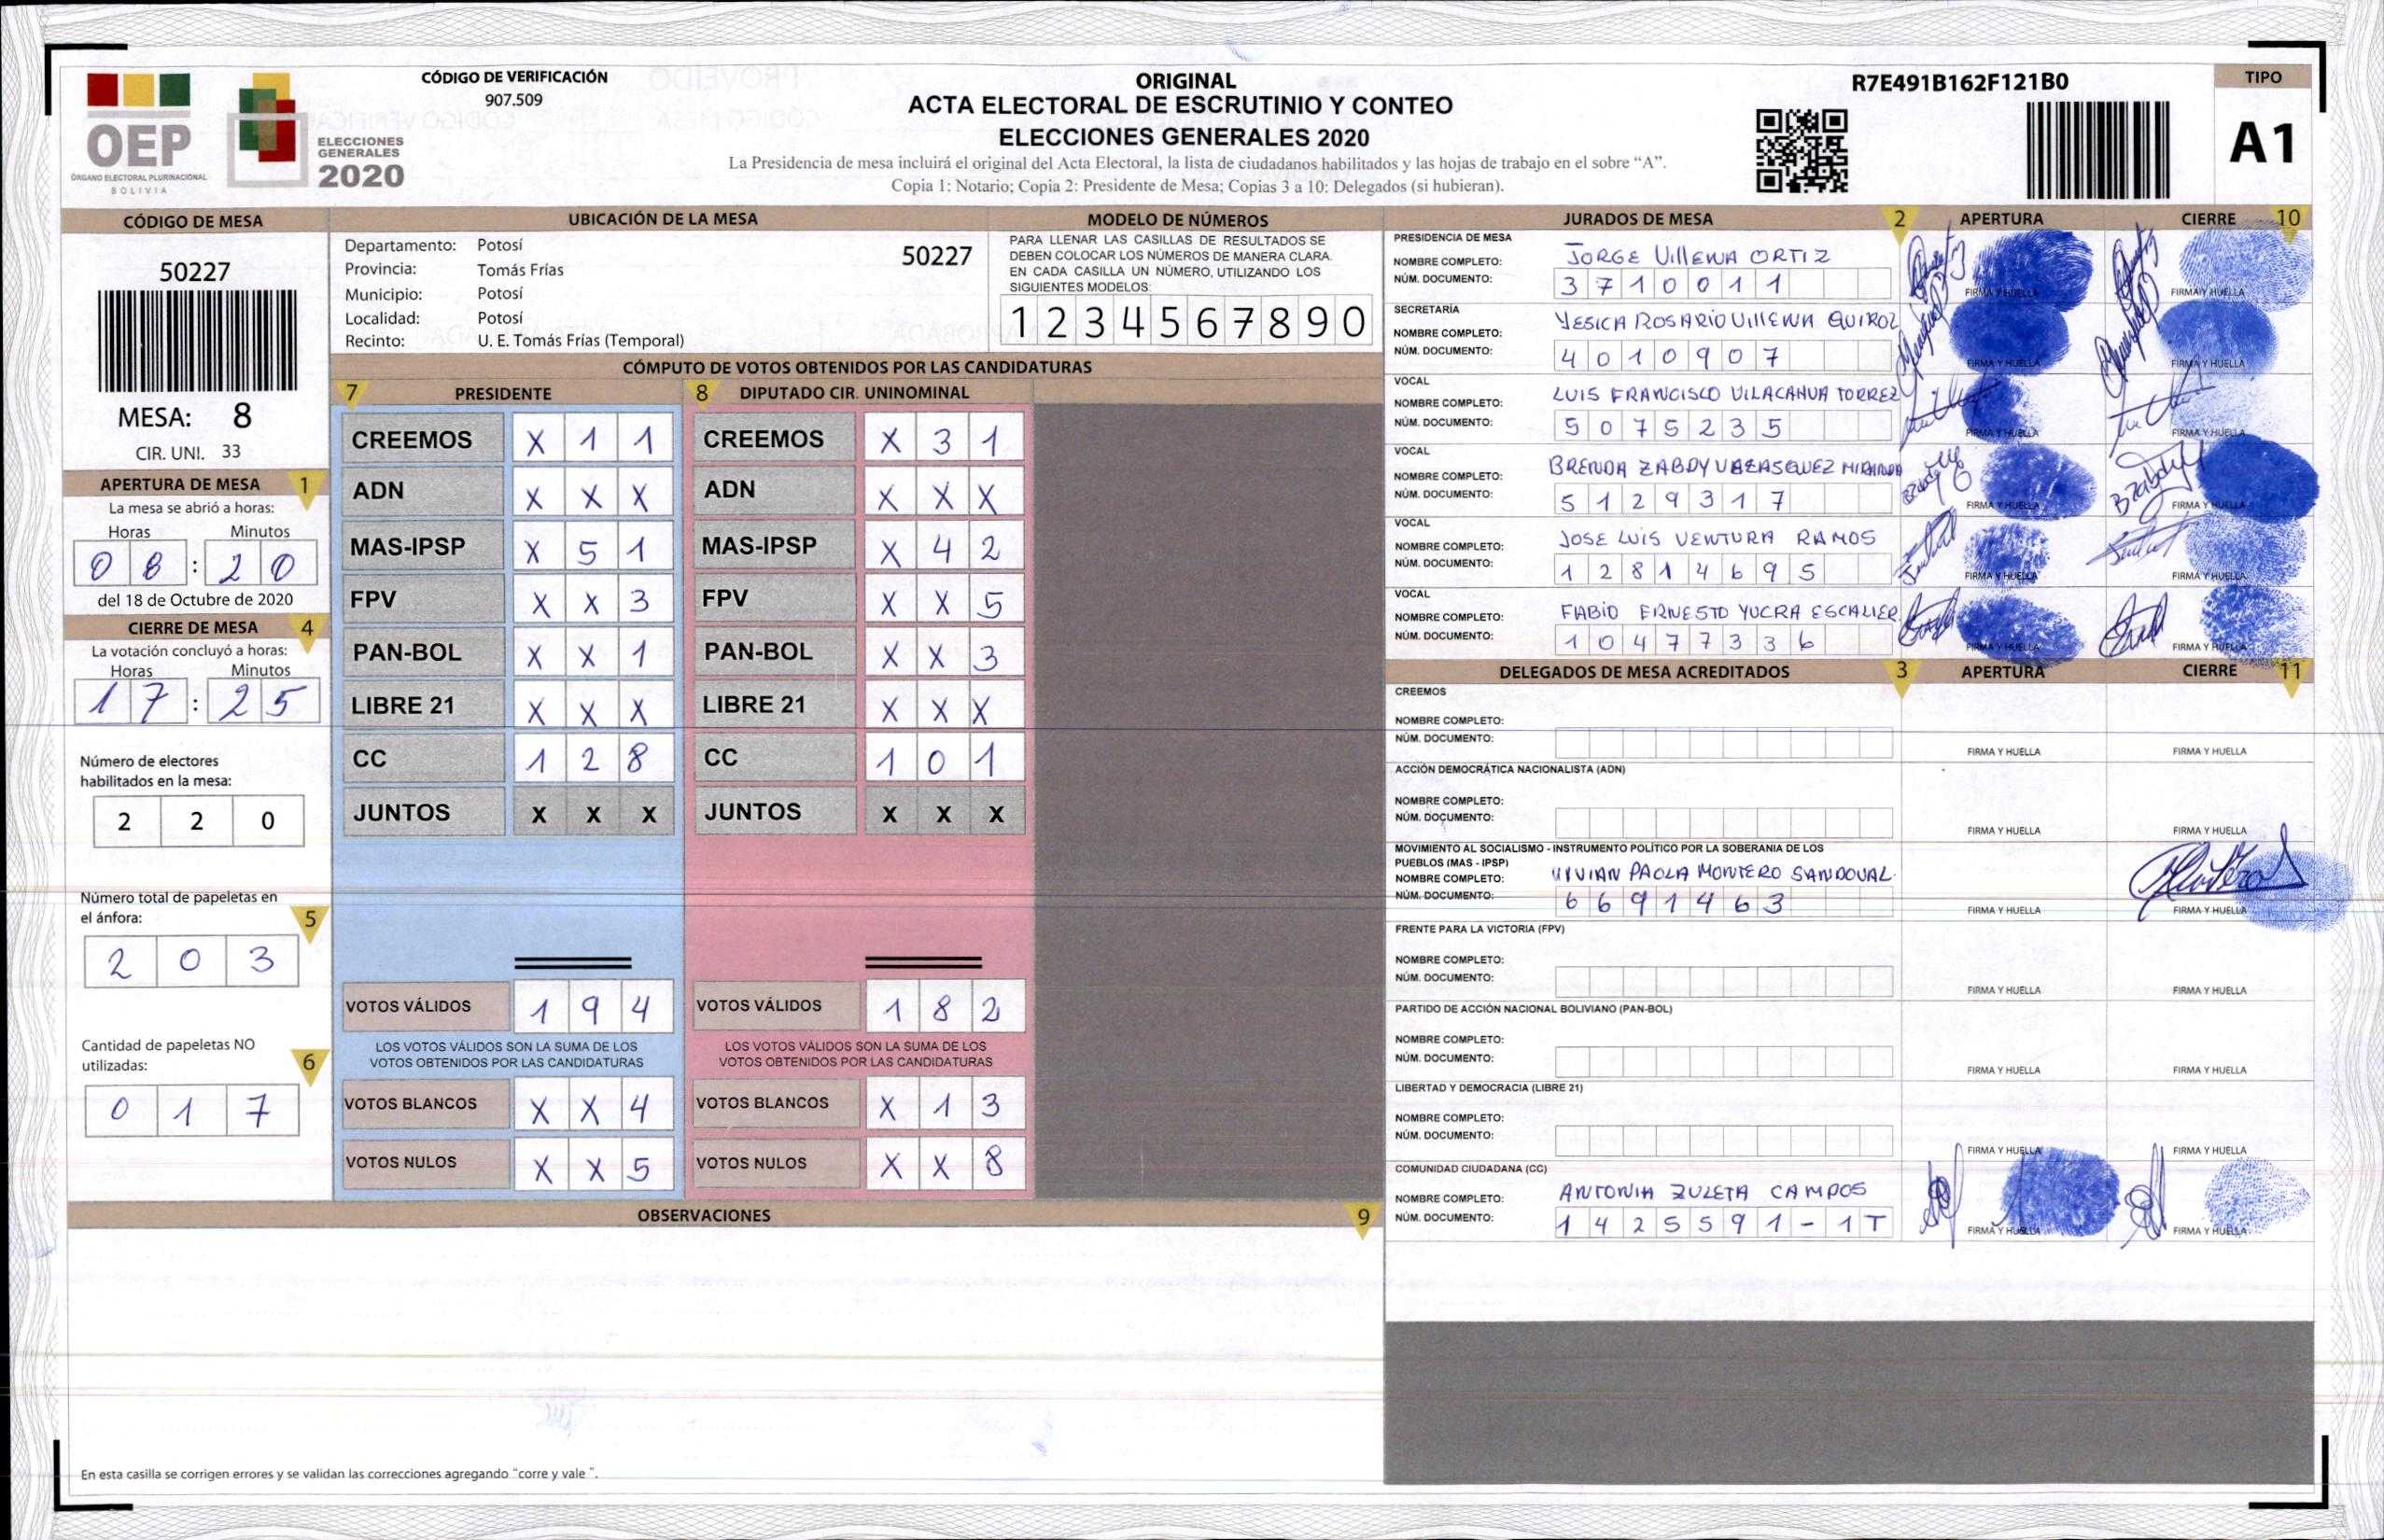 CÓDIGO DE VERIFICACIÓN
907.509
OEP
ÓRGANO ELECTORAL PLURINACIONAL
BOLIVIA
ELECCIONES
GENERALES
2020
ORIGINAL
ACTA ELECTORAL DE ESCRUTINIO Y CONTEO
ELECCIONES GENERALES 2020
La Presidencia de mesa incluirá el original del Acta Electoral, la lista de ciudadanos habilitados y las hojas de trabajo en el sobre “A”.
Copia 1: Notario; Copia 2: Presidente de Mesa; Copias 3 a 10: Delegados (si hubieran).
R7E491B162F121B0
TIPO
A1
CÓDIGO DE MESA
50227
MESA: 8
CIR. UNI. 33
UBICACIÓN DE LA MESA
Departamento: Potosí
50227
Provincia: Tomás Frías
Municipio: Potosí
Localidad: Potosí
Recinto: U. E. Tomás Frías (Temporal)
MODELO DE NÚMEROS
PARA LLENAR LAS CASILLAS DE RESULTADOS SE
DEBEN COLOCAR LOS NÚMEROS DE MANERA CLARA.
EN CADA CASILLA UN NÚMERO, UTILIZANDO LOS
SIGUIENTES MODELOS:
1 2 3 4 5 6 7 8 9 0
APERTURA DE MESA 1
La mesa se abrió a horas:
Horas Minutos
0 8 : 2 0
del 18 de Octubre de 2020
CIERRE DE MESA 4
La votación concluyó a horas:
Horas Minutos
1 7 : 2 5
Número de electores
habilitados en la mesa:
2 2 0
Número total de papeletas en
el ánfora: 5
2 0 3
Cantidad de papeletas NO
utilizadas: 6
0 1 7
CÓMPUTO DE VOTOS OBTENIDOS POR LAS CANDIDATURAS
7 PRESIDENTE
CREEMOS X 1 1
ADN X X X
MAS-IPSP X 5 1
FPV X X 3
PAN-BOL X X 1
LIBRE 21 X X X
CC 1 2 8
JUNTOS X X X
VOTOS VÁLIDOS 1 9 4
LOS VOTOS VÁLIDOS SON LA SUMA DE LOS
VOTOS OBTENIDOS POR LAS CANDIDATURAS
VOTOS BLANCOS X X 4
VOTOS NULOS X X 5
8 DIPUTADO CIR. UNINOMINAL
CREEMOS X 3 1
ADN X X X
MAS-IPSP X 4 2
FPV X X 5
PAN-BOL X X 3
LIBRE 21 X X X
CC 1 0 1
JUNTOS X X X
VOTOS VÁLIDOS 1 8 2
LOS VOTOS VÁLIDOS SON LA SUMA DE LOS
VOTOS OBTENIDOS POR LAS CANDIDATURAS
VOTOS BLANCOS X 1 3
VOTOS NULOS X X 8
OBSERVACIONES 9
En esta casilla se corrigen errores y se validan las correcciones agregando “corre y vale ”.
JURADOS DE MESA 2 APERTURA CIERRE 10
PRESIDENCIA DE MESA
NOMBRE COMPLETO: JORGE VILLENA ORTIZ
NÚM. DOCUMENTO: 3 7 1 0 0 1 1
FIRMA Y HUELLA FIRMA Y HUELLA
SECRETARÍA
NOMBRE COMPLETO: YESICA ROSARIO VILLENA QUIROZ
NÚM. DOCUMENTO: 4 0 1 0 9 0 7
FIRMA Y HUELLA FIRMA Y HUELLA
VOCAL
NOMBRE COMPLETO: LUIS FRANCISCO VILACAHUA TORREZ
NÚM. DOCUMENTO: 5 0 7 5 2 3 5
FIRMA Y HUELLA FIRMA Y HUELLA
VOCAL
NOMBRE COMPLETO: BRENDA ZABDY MIRANDA
NÚM. DOCUMENTO: 5 1 2 9 3 1 7
FIRMA Y HUELLA FIRMA Y HUELLA
VOCAL
NOMBRE COMPLETO: JOSE LUIS VENTURA RAMOS
NÚM. DOCUMENTO: 1 2 8 1 4 6 9 5
FIRMA Y HUELLA FIRMA Y HUELLA
VOCAL
NOMBRE COMPLETO: FABIO ERNESTO YUCRA ESCALIER
NÚM. DOCUMENTO: 1 0 4 7 7 3 3 6
FIRMA Y HUELLA FIRMA Y HUELLA
DELEGADOS DE MESA ACREDITADOS 3 APERTURA CIERRE 11
CREEMOS
NOMBRE COMPLETO:
NÚM. DOCUMENTO:
FIRMA Y HUELLA FIRMA Y HUELLA
ACCIÓN DEMOCRÁTICA NACIONALISTA (ADN)
NOMBRE COMPLETO:
NÚM. DOCUMENTO:
FIRMA Y HUELLA FIRMA Y HUELLA
MOVIMIENTO AL SOCIALISMO - INSTRUMENTO POLÍTICO POR LA SOBERANIA DE LOS
PUEBLOS (MAS - IPSP)
NOMBRE COMPLETO: VIVIAN PAOLA MONTERO SANDOVAL
NÚM. DOCUMENTO: 6 6 9 1 4 6 3
FIRMA Y HUELLA FIRMA Y HUELLA
FRENTE PARA LA VICTORIA (FPV)
NOMBRE COMPLETO:
NÚM. DOCUMENTO:
FIRMA Y HUELLA FIRMA Y HUELLA
PARTIDO DE ACCIÓN NACIONAL BOLIVIANO (PAN-BOL)
NOMBRE COMPLETO:
NÚM. DOCUMENTO:
FIRMA Y HUELLA FIRMA Y HUELLA
LIBERTAD Y DEMOCRACIA (LIBRE 21)
NOMBRE COMPLETO:
NÚM. DOCUMENTO:
FIRMA Y HUELLA FIRMA Y HUELLA
COMUNIDAD CIUDADANA (CC)
NOMBRE COMPLETO: ANTONIA ZULETA CAMPOS
NÚM. DOCUMENTO: 1 4 2 5 5 9 1 - 1 T
FIRMA Y HUELLA FIRMA Y HUELLA